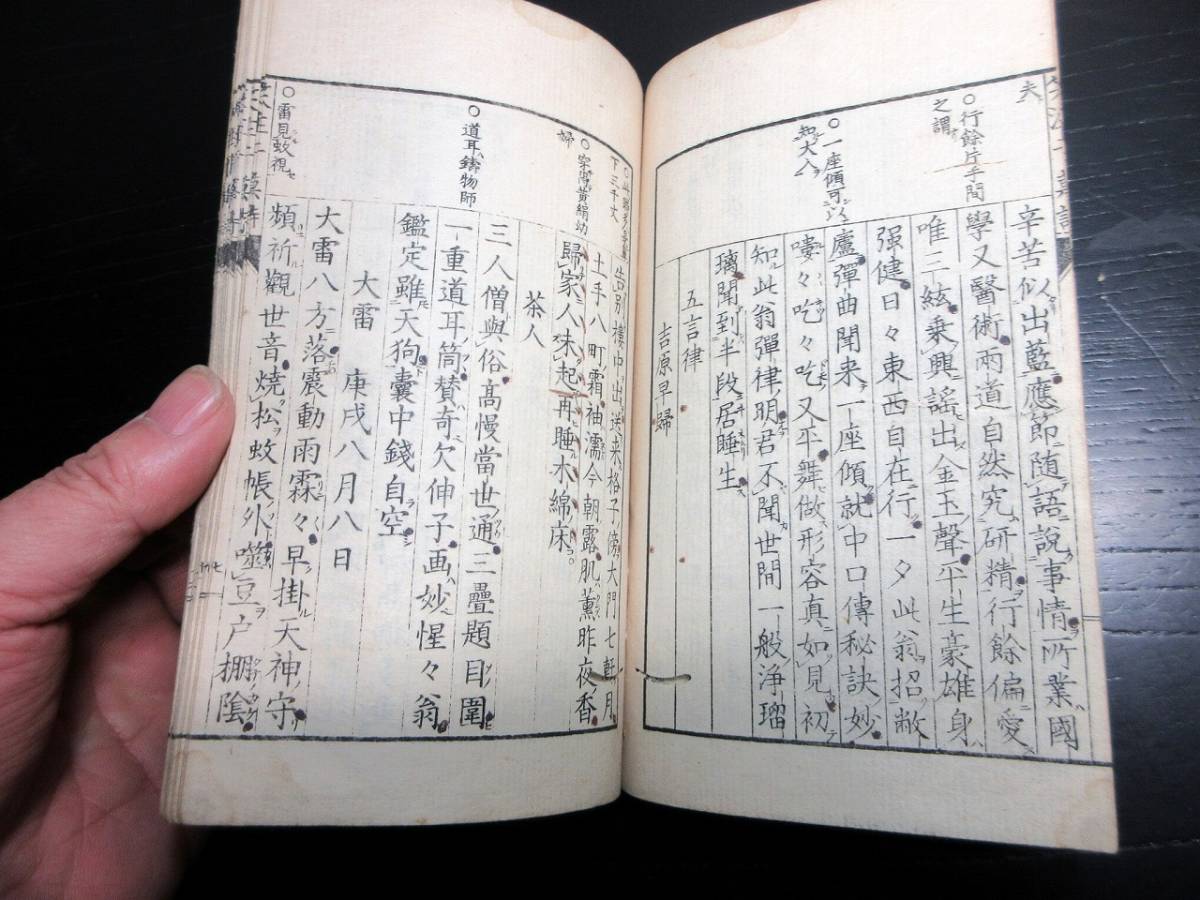 夫
○行餘片手間
之謂
○一座傾可以
知大入
辛苦似出藍應節隨語說事情所業國
學又醫術兩道自然究研精行餘偏愛
唯三絃乘興謠出金玉聲平生豪雄身
强健日々東西自在行一夕此翁招敝
廬彈曲聞来一座傾就中口傳秘訣妙
嘍々吃々吃又平舞做形容真如見初
知此翁彈律明君不聞世間一般淨瑠
璃聞到半段居睡生
五言律
吉原早歸
下三千丈
○穿鑿黄絹幼
婦
○道耳鑄物師
○雷見蚊視
告別樓中出送来格子傍大門七軒月
土手八町霜袖濡今朝露肌薰昨夜香
歸家人未起再睡木綿床
茶人
三人僧與俗高慢當世通三疊題目圍
一重道耳筒賛奇欠伸子画妙惺々翁
鑑定雖天狗囊中錢自空
大雷 庚戌八月八日
大雷八方落震動雨霖々早掛天神守
頻祈觀世音燒松蚊帳外噬豆户棚陰